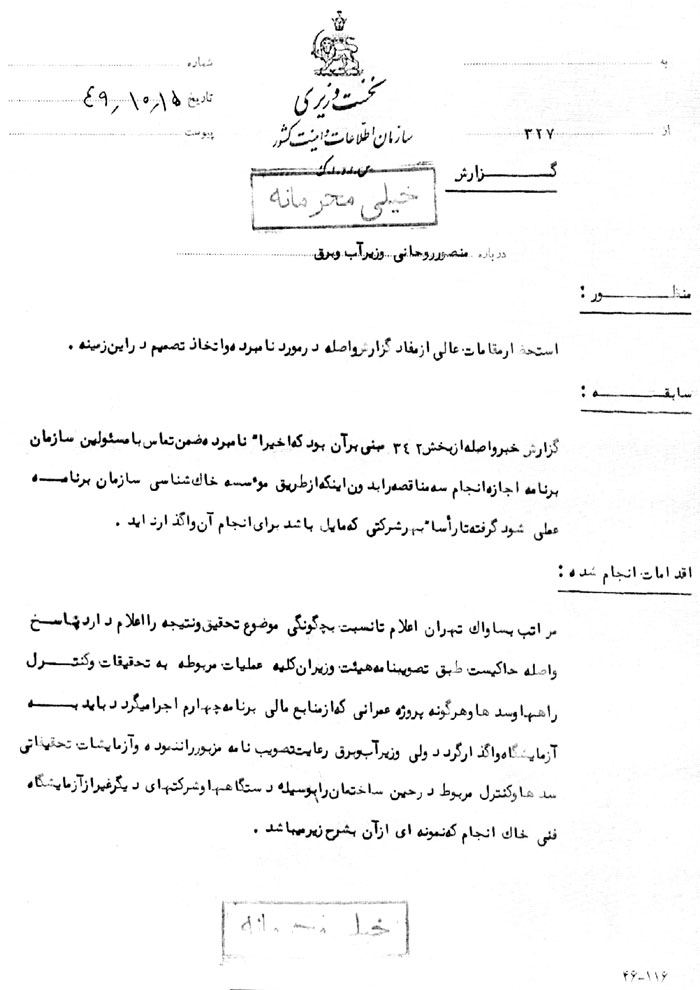 به
شماره
نخست وزیری
تاریخ ۴۹٫۱۰٫۱۵
سازمان اطلاعات و امنیت کشور
از ۳۲۷
پیوست
س.ا.و.ا.ک
گزارش
خیلی محرمانه
درباره منصور روحانی وزیر آب وبرق
منظور :
استحضار مقامات عالی از مفاد گزارش واصله در مورد نامبرده و اتخاذ تصمیم در این زمینه .
سابقه :
گزارش خبر واصله از بخش ۳۴۲ مبنی بر آن بود که اخیراً نامبرده ضمن تماس با مسئولین سازمان
برنامه اجازه انجام سه مناقصه را بدون اینکه از طریق موسسه خاک شناسی سازمان برنامه
عملی شود گرفته تا رأساً بهر شرکتی که مایل باشد برای انجام آن واگذار نماید .
اقدامات انجام شده :
مراتب بساواک تهران اعلام تا نسبت بچگونگی موضوع تحقیق و نتیجه را اعلام دارد پاسخ
واصله حاکیست طبق تصویبنامه هیئت وزیران کلیه عملیات مربوطه به تحقیقات وکنترل
راهها و سدها و هرگونه پروژه عمرانی که از منابع مالی برنامه چهارم اجرا میگردد باید به
آزمایشگاه واگذار گردد ولی وزیر آب وبرق رعایت تصویب نامه مزبور را ننموده و آزمایشات تحقیقاتی
سدها و کنترل مربوط در حین ساختمان را بوسیله دستگاهها و شرکتهای دیگر غیر از آزمایشگاه
فنی خاک انجام که نمونه ای از آن بشرح زیر میباشد .
خیلی محرمانه
۴۶-۱۱۶